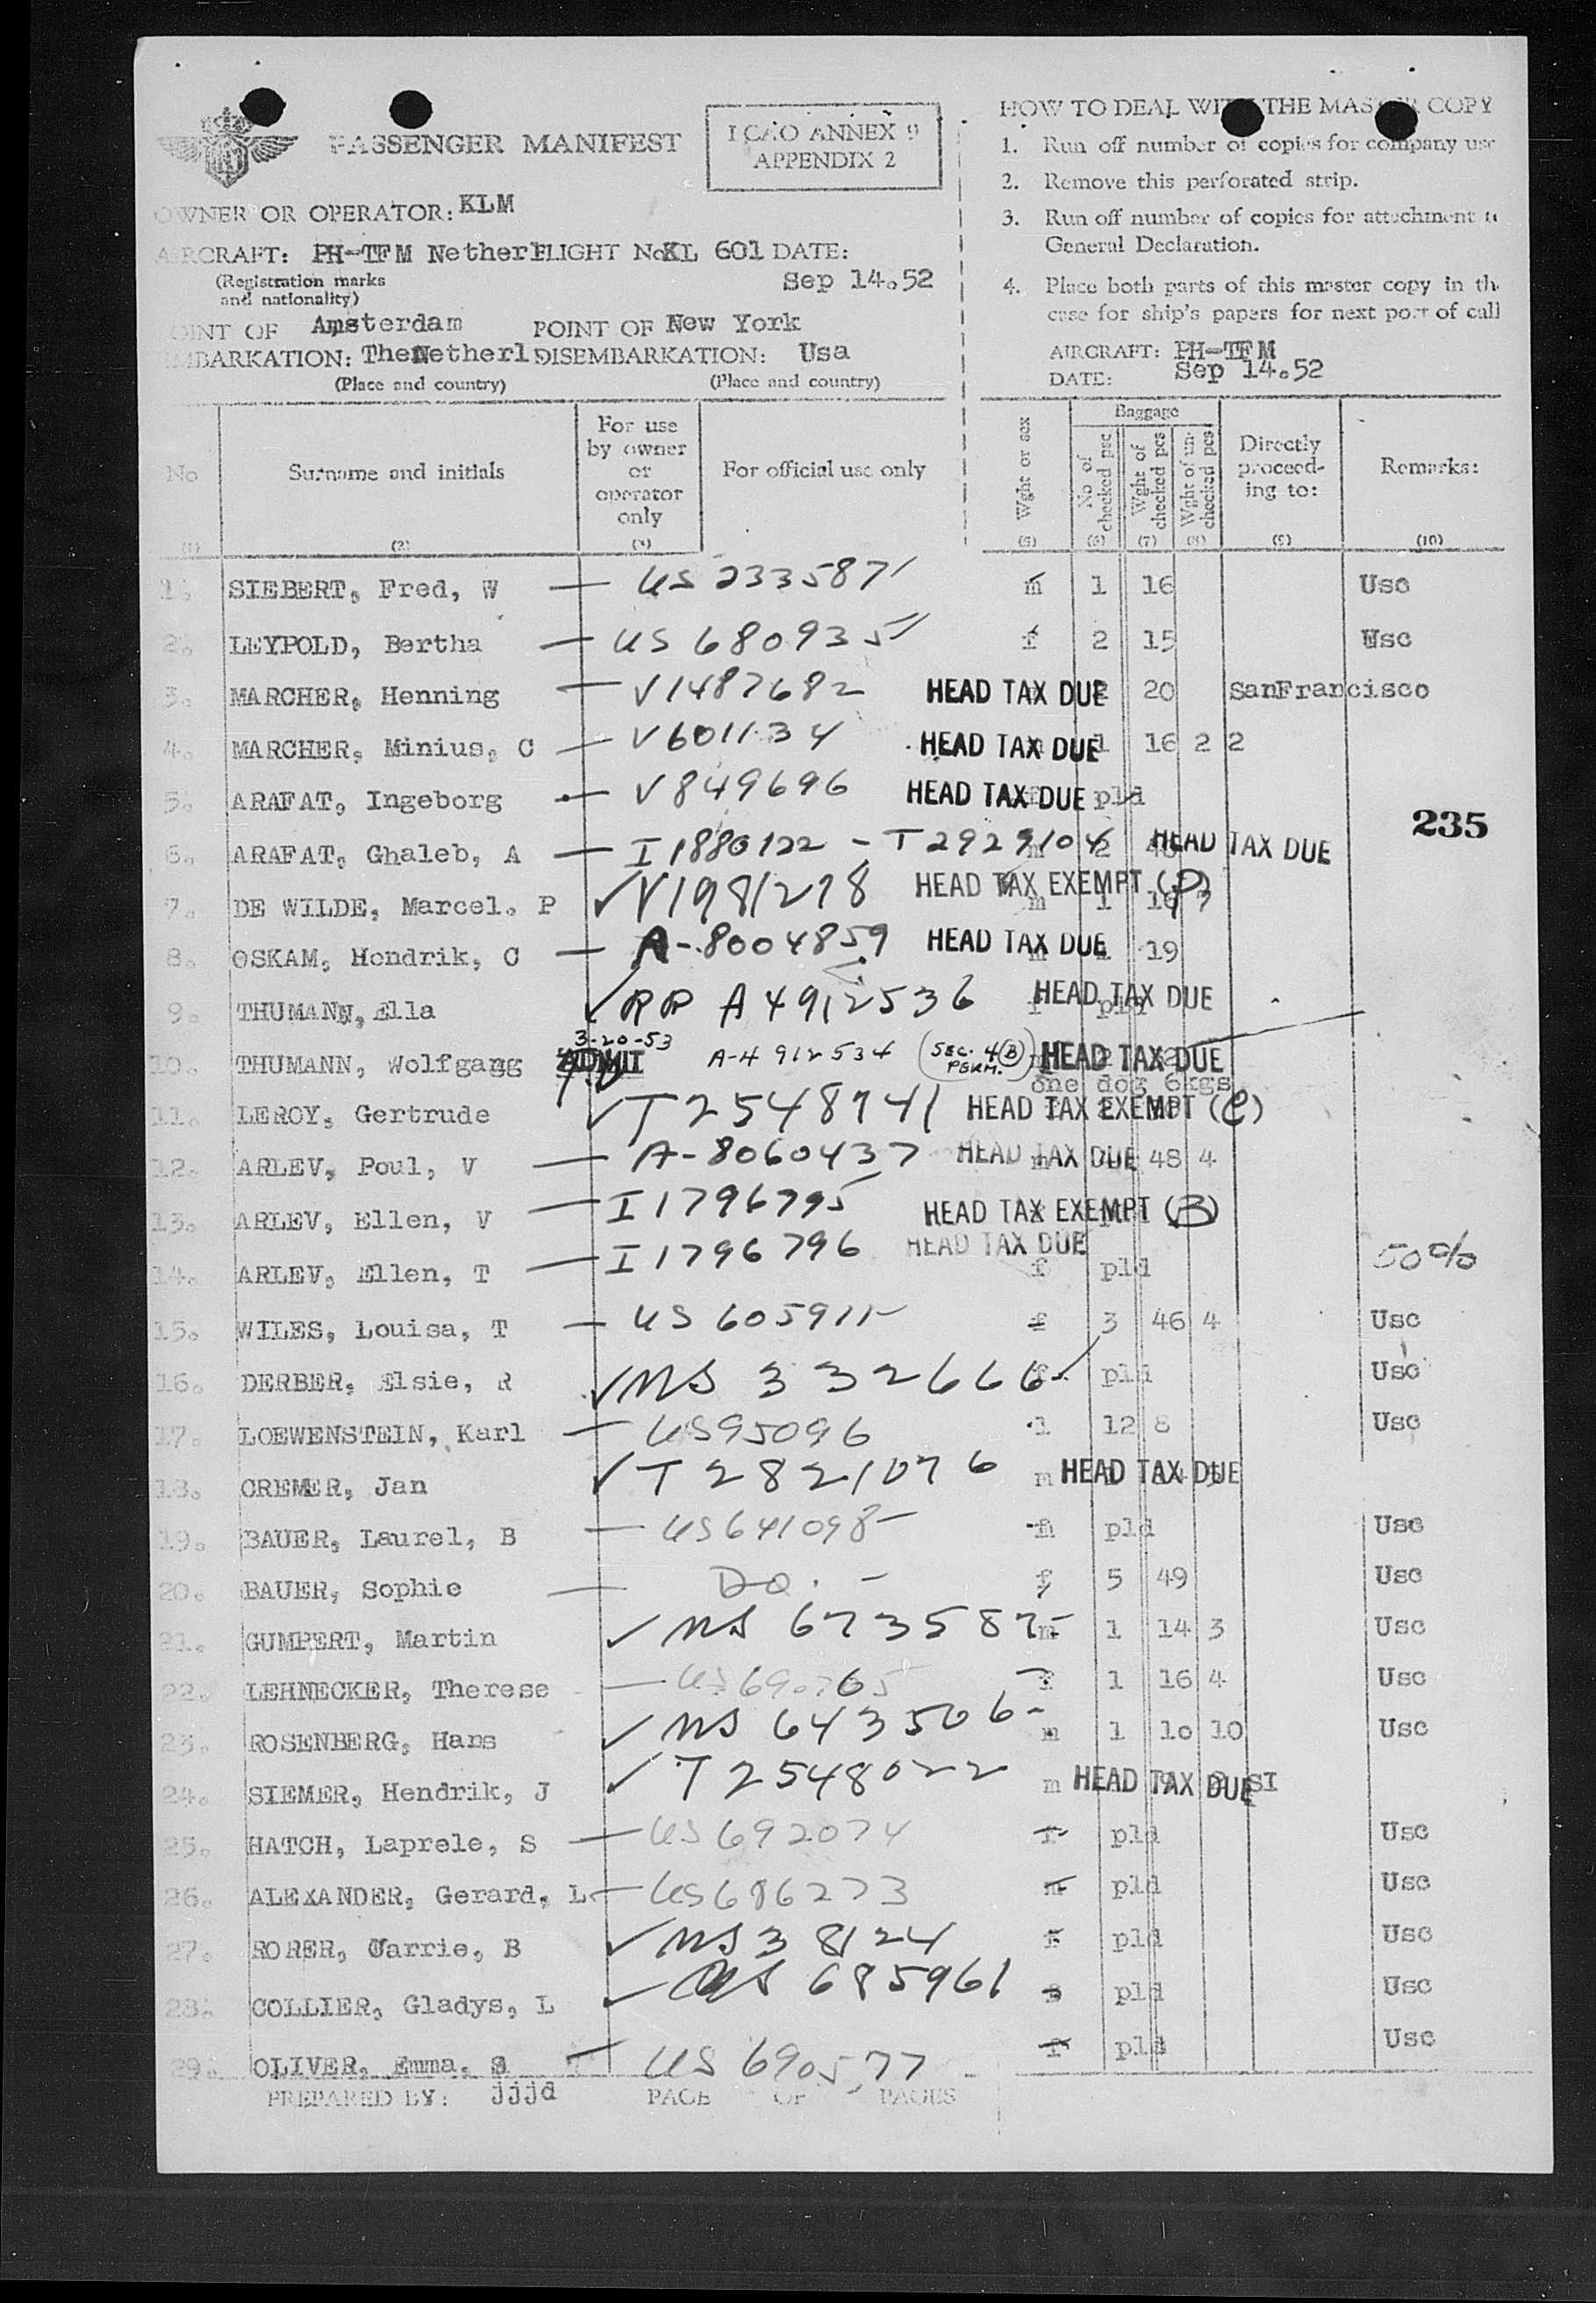 PASSENGER MANIFEST
ICAO ANNEX 9
APPENDIX 2
OWNER OR OPERATOR: KLM
AIRCRAFT: PH-TFM Netherl FLIGHT No KL 601 DATE:
(Registration marks and nationality)
Sep 14.52
POINT OF Amsterdam POINT OF New York
EMBARKATION: The Netherl DISEMBARKATION: Usa
(Place and country) (Place and country)
HOW TO DEAL WITH THE MASTER COPY
1. Run off number of copies for company use
2. Remove this perforated strip.
3. Run off number of copies for attachment to
General Declaration.
4. Place both parts of this master copy in the
case for ship's papers for next port of call
AIRCRAFT: PH-TFM
DATE: Sep 14.52
No Surname and initials For use by owner or operator only For official use only Wght or sex Baggage No of checked psc Wght of checked pcs Wght of un-checked pcs Directly proceed-ing to: Remarks:
(1) (2) (3) (5) (6) (7) (8) (9) (10)
1. SIEBERT, Fred, W — US 233587 m 1 16 Usc
2. LEYPOLD, Bertha — US 680935 f 2 15 Usc
3. MARCHER, Henning — V1487682 HEAD TAX DUE 2 20 SanFrancisco
4. MARCHER, Minius, C — V601134 HEAD TAX DUE 1 16 2 2
5. ARAFAT, Ingeborg — V849696 HEAD TAX DUE pld
235
6. ARAFAT, Ghaleb, A — I 1880122 - T 292910 m 2 HEAD TAX DUE
7. DE WILDE, Marcel. P ✓ V1981278 HEAD TAX EXEMPT (P) m 1
8. OSKAM, Hendrik, C — A-8004859 HEAD TAX DUE 19
9. THUMANN, Ella ✓ RP A4912536 f HEAD TAX DUE pld
10. THUMANN, Wolfgang 3-20-53 ADMIT A-4912534 (SEC. 4(B) PERM.) HEAD TAX DUE
one dog 6kgs
11. LEROY, Gertrude ✓ T2548741 HEAD TAX EXEMPT (C)
12. ARLEV, Poul, V — A-8060437 HEAD TAX DUE m 48 4
13. ARLEV, Ellen, V — I 1796795 HEAD TAX EXEMPT (B)
14. ARLEV, Ellen, T — I 1796796 HEAD TAX DUE f pld 50%
15. WILES, Louisa, T — US 605911 f 3 46 4 Usc
16. DERBER, Elsie, R ✓ US 332666 f pld Usc
17. LOEWENSTEIN, Karl — US95096 1 12 8 Usc
18. CREMER, Jan ✓ T 2821076 m HEAD TAX DUE
19. BAUER, Laurel, B — US641098 pld Usc
20. BAUER, Sophie — Do. f 5 49 Usc
21. GUMPERT, Martin ✓ US 673587 m 1 14 3 Usc
22. LEHNECKER, Therese — f 1 16 4 Usc
23. ROSENBERG, Hans ✓ US 643506 m 1 10 10 Usc
24. SIEMER, Hendrik, J ✓ T 2548022 m HEAD TAX DUE SI
25. HATCH, Laprele, S — US 692074 f pld Usc
26. ALEXANDER, Gerard, L — US686273 m pld Usc
27. RORER, Carrie, B ✓ US 38124 f pld Usc
28. COLLIER, Gladys, L ✓ US 685961 pld Usc
29. OLIVER, Emma, — US 690577 f pld Usc
PREPARED BY: jjjd PAGE OF PAGES